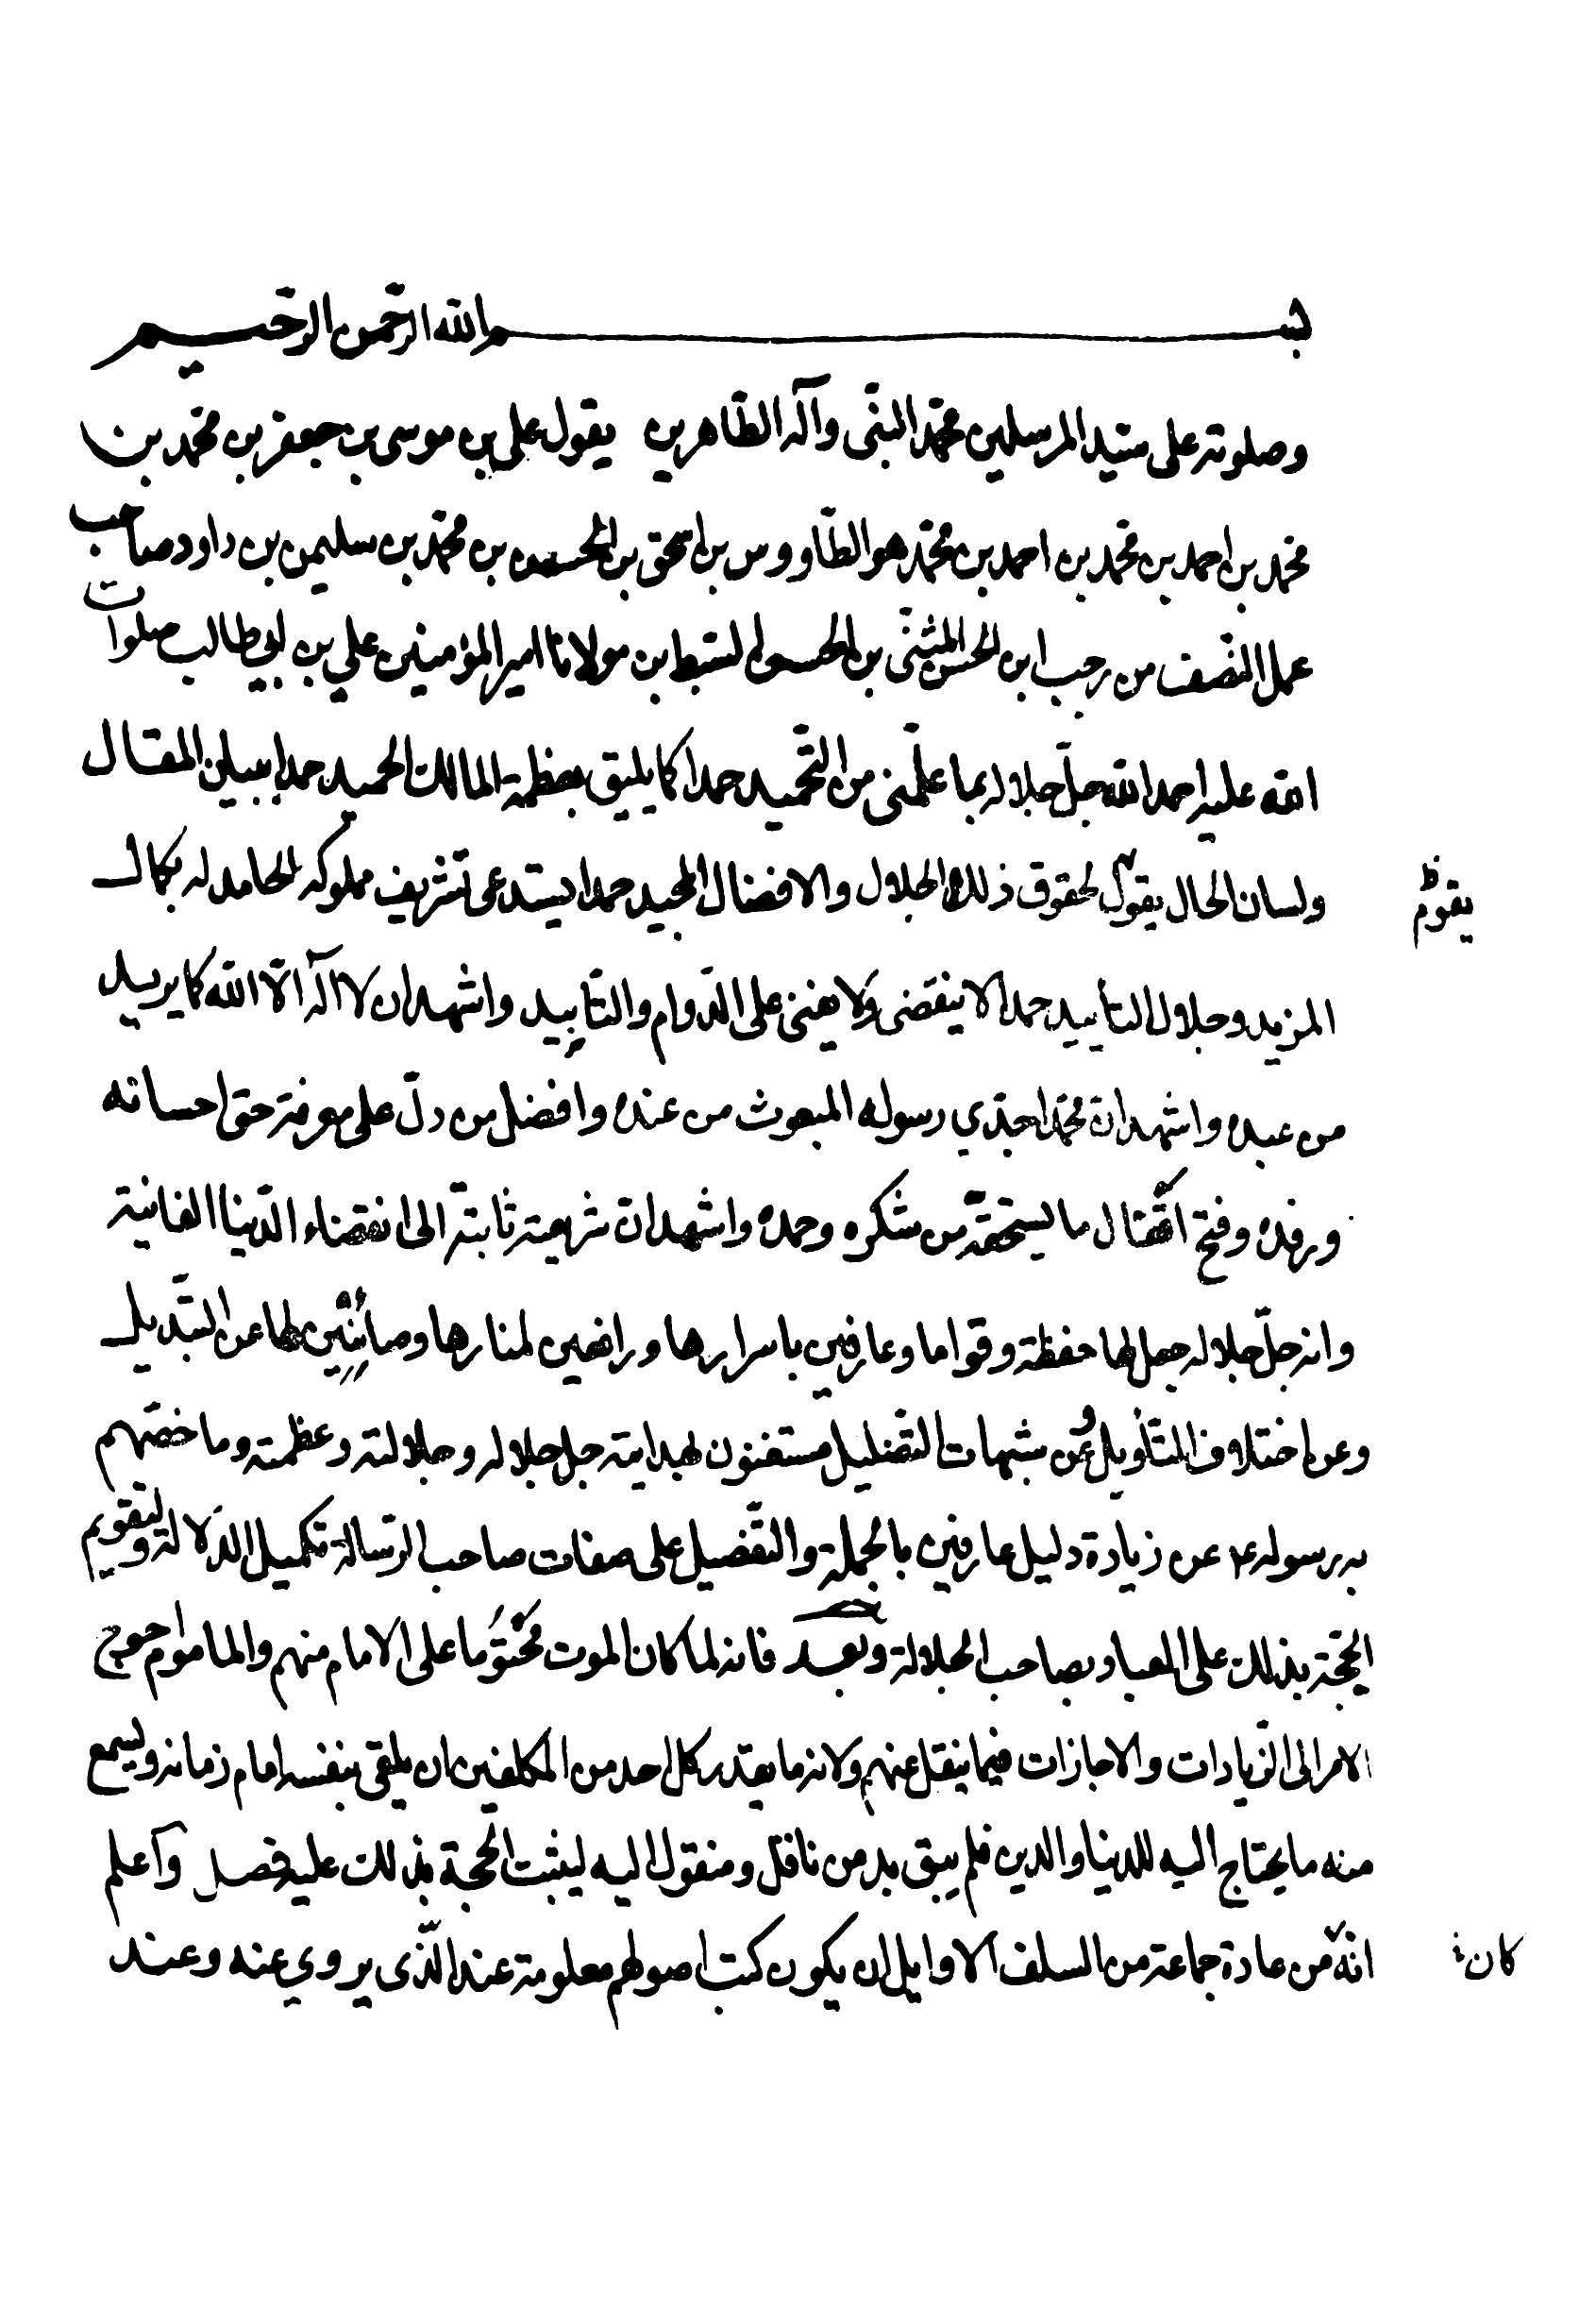 بسم الله الرحمن الرحيم
وصلوته على سيد المرسلين محمد النبى وآله الطاهرين يقول على بن موسى بن جعفر بن محمد بن
محمد بن احمد بن محمد بن احمد بن محمد هو الطاووس بن اسحق بن الحسن بن محمد بن سليمن بن داود صاحب
عمل النصف من رجب ابن الحسن المثنى بن الحسن السبط بن مولانا امير المؤمنين علي بن ابي طالب صلوات
الله عليه احمد الله جل جلاله بما علمنى من التحميد حمدا كما يليق بعظمة المالك الحميد حمدا بلسان المقال
ولسان الحال يقول لحقوق ذلك الجلال والافضال المجيد حمدا يستدعى تشريف مملوكه الحامد له بكمال
يقوم
المزيد وجلال التأييد حمدا لا ينقضى ولا يفنى على الدوام والتابيد واشهد ان لا اله الا الله كما يريد
من عبده واشهد ان محمدا جدي رسوله المبعوث من عنده وافضل من دل على معرفة حق احسانه
ورفده وفتح اقفال ما يستحقه من شكره وحمده واشهد ان شريعته ثابتة الى انقضاء الدنيا الفانية
وانه جل جلاله جعل لها حفظة وقواما وعارفين باسرارها ورافعين لمنارها وصائنين لها عن التبديل
وعن اختلاف التأويل وعن شبهات التضليل مستغنون بهدايته جل جلاله وجلالته وعظمته وما خصهم
به برسوله ع عن زيادة دليل عارفين بالجملة والتفضيل على صفات صاحب الرسالة تكميل الدلالة ولتقويم
الحجة بذلك على العباد بصاحب الجلالة وبعد فانه لما كان الموت محتوما على الامام منهم والماموم احوج
الامر الى الزيادات والاجازات فيما ينقل عنهم ولانه ما يقدر كل احد من المكلفين ان يلقى بنفسه امام زمانه ويسمع
منه ما يحتاج اليه للدنيا والدين فلم يبق بد من ناقل ومنقول اليه ليثبت الحجة بذلك عليه فصل واعلم
انه من عادة جماعة من السلف الاوايل ان يكون كتب اصولهم معلومة عند الذى يروي عنه وعند
كان